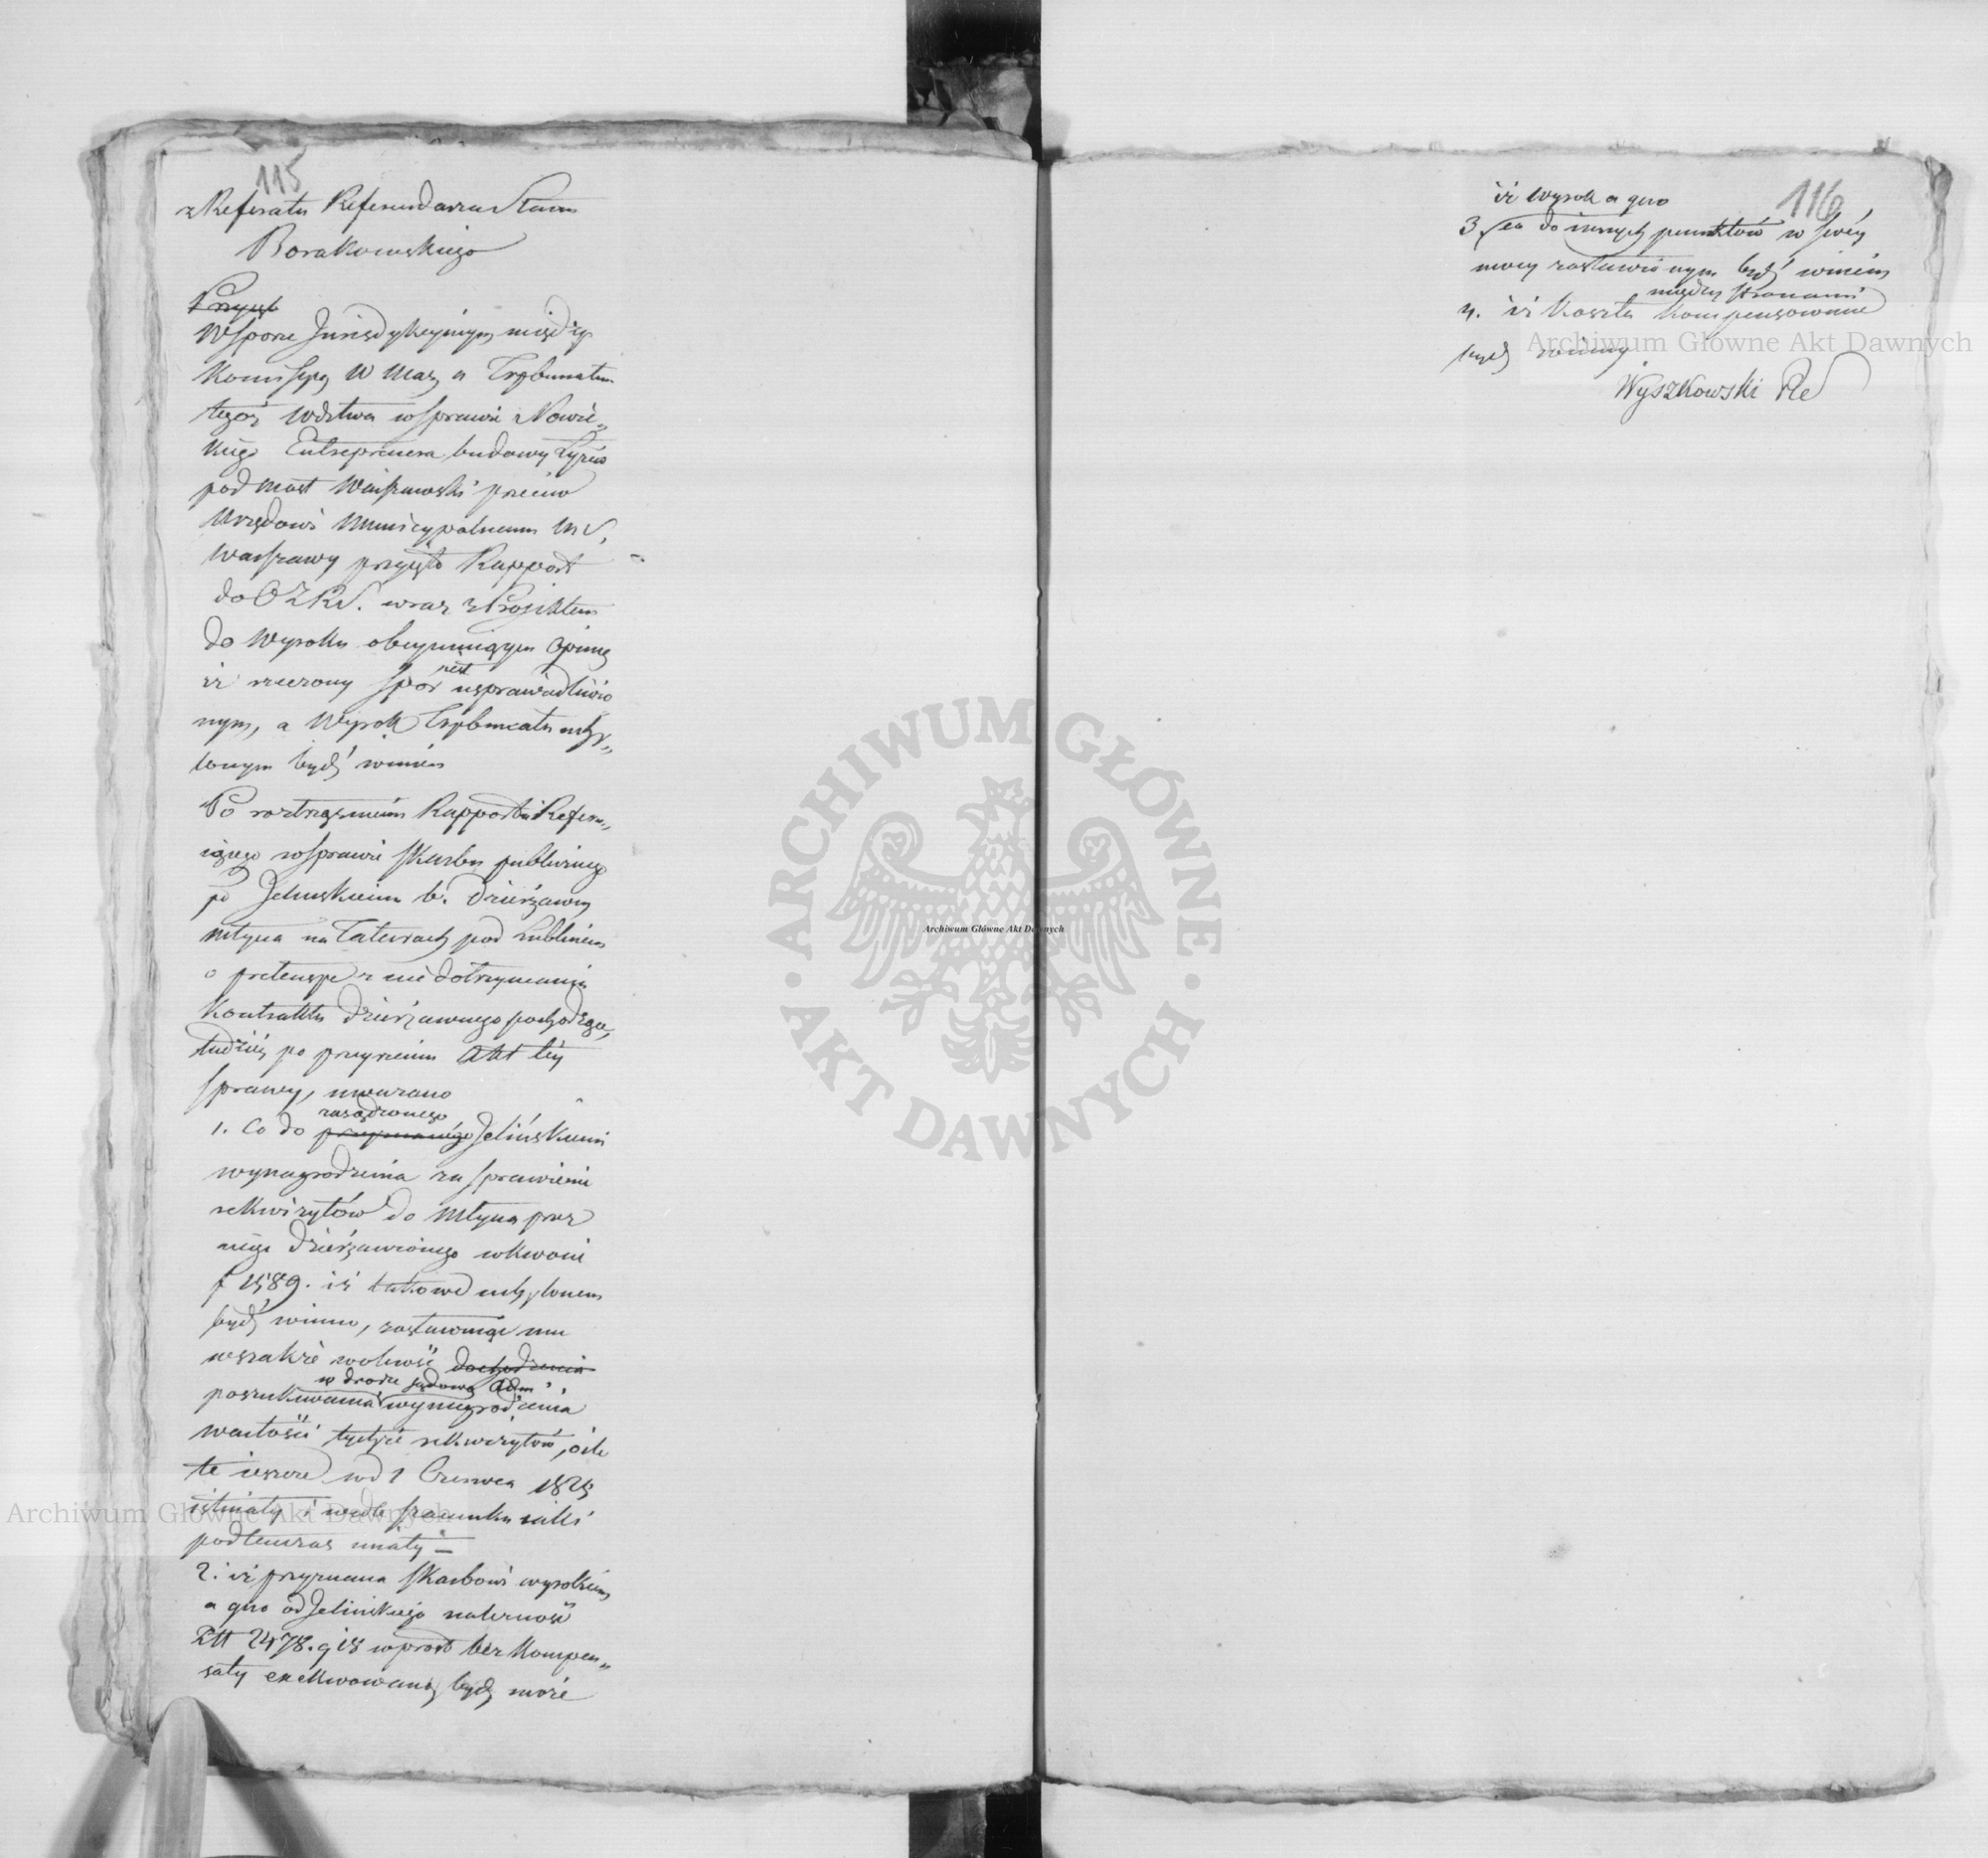 115
z Referatu Referendarza Stanu
Borakowskiego
Przyst
W sporze Jurisdykcyinym między
Kommissyą W Maz a Trybunałem
tegoż Wdztwa w sprawie Nowic„
kiego Entreprenera budowy Łyżw
pod most Warszawski przeciw
Urzędowi Municypalnemu M S.
Warszawy przyięto Rapport
do O Z R S. wraz z Projektem
do Wyroku obeymuiącym Opinię
iż rzeczony spór iest usprawiedliwio
nym, a Wyrok Trybunału uchy„
lonym bydź winien
Po roztrząśnieniu Rapportu Refer„
uiącego w sprawie Skarbu publicznego
po Jelinskiemu b. Dzierżawcy
młyna na Tatarach pod Lublinem
o pretensye z nie dotrzymania
Kontraktu dzierżawnego pochodzące,
tudzież po przeyrzeniu Akt téy
sprawy, uważano
1. Co do przyznanego zasądzonego Jelińskiemu
wynagrodzenia za sprawienie
rekwizytów do Młyna przez
niego dzierżawionego w kwocie
f 1589. iż takowe uchylonem
bydź winno, zostawuiąc mu
wszakże wolność dochodzenia
poszukiwania w drodze sądowo Adm wynagrodzenia
wartości tychże rekwizytów, o ile
te ieszcze w d 1 Czerwca 1825
istniały i wedle szacunku iaki
podtenczas miały —
2. iż przyznana Skarbowi wyrokiem
a quo od Jelińskiego należność
Złt 2478. g 18 wprost bez kompen„
saty exekwowaną bydź może
116
iż Wyrok a quo
3. co do innych punktów w swéy
mocy zostawionym bydź winien
4. iż koszta między stronami kompensowane
bydź winny
Wyszkowski Re
Archiwum Główne Akt Dawnych
Archiwum Główne Akt Dawnych
Archiwum Główne Akt Dawnych
ARCHIWUM GŁÓWNE AKT DAWNYCH